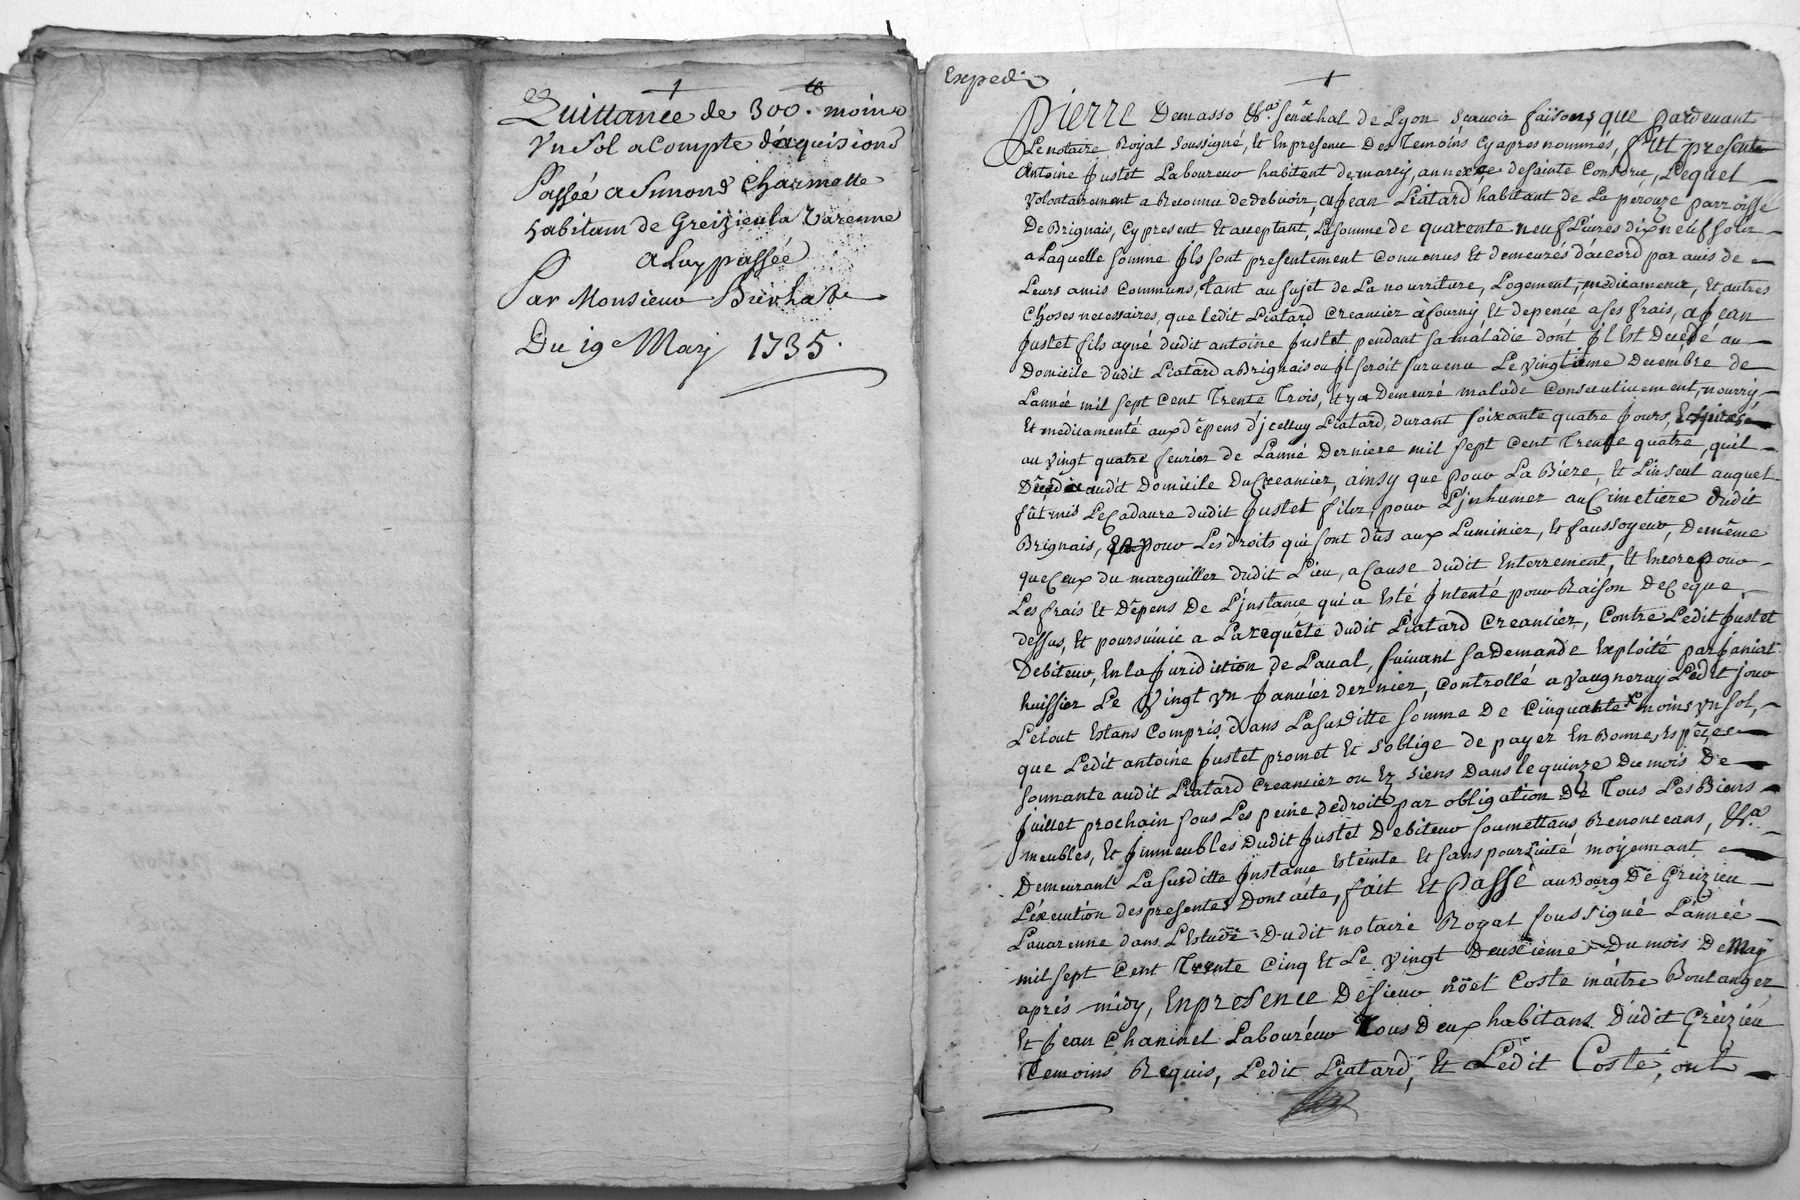 Quittance de 300.tt moins
Vn Sol acompte d'aquisions
Passée a Simond Charmette
habitant de Greizieu la Varenne
a Luy passée
Par Monsieur
Du 19e May 1735.
Exped.
Pierre Demasso &a. senechal de Lyon scavoir faisons que pardevant
Le notaire Royal soussigné, et En presence Des Temoins Cy apres nommés, fut present
Antoine Justet Laboureur habitant de marcy, annexe de sainte Consorce, Lequel
volontairement a Reconnu de debvoir, a Jean Liatard habitant de La perouze parroisse
De Brignais, Cy present et acceptant, La somme de quarente neuf Livres dix neuf sols
a Laquelle somme Ils sont presentement Convenus et demeurés d'accord par auis de
Leurs amis Communs, tant au sujet de La nourriture, Logement, medicaments, et autres
Choses necessaires, que ledit Liatard Creancier a fourny et depencé a ses frais, a Jean
Justet fils ayné dudit antoine Justet pendant sa maladie dont Il Est Decedé au
Domicile dudit Liatard a Brignais ou Il seroit survenu Le vingtieme decembre de
Lannée mil sept Cent Trente Trois, et y a Demeuré malade Consecutivement, nourry
et medicamenté aux dêpens d'jcelluy Liatard, durant soixante quatre Jours, Expirés
au vingt quatre feurier de Lannée Derniere mil sept Cent Trente quatre, quil
audit Domicile du Creancier, ainsy que pour La Biere, et Linseul auquel
fût mis Le Cadaure dudit Justet fils, pour L'jnhumer au Cimetiere dudit
Brignais, pour Les droits qui sont dûs aux Luminier, et faussoyeur, De même
que Ceux du marguiller dudit Lieu, a Cause dudit Enterrement, et Encore pour
Les frais et Dêpens De L'jnstance qui a Esté Jntenté pour Raison De Ceque
dessus, et poursuivie a La requête dudit Liatard Creancier, Contre Ledit Justet
Debiteur, En la Juridiction de Laval, suivant sa Demande Exploité par
huissier Le Vingt vn Janvier dernier, Controllé a Vaugneray Ledit jour
Le tout Estans Compris dans La susditte somme De Cinquante tt moins vn sol,
que Ledit antoine Justet promet et s'oblige de payer En Bonnes Espêces
sonnante audit Liatard Creancier ou Ez siens Dans le quinze Du mois De
Juillet prochain sous Les peine de droit par obligation De Tous Les Biens
meubles, et Jmmeubles dudit Justet Debiteur soumettans Renonceans, &a
Demeurant La susditte Jnstance Esteinte et sans poursuite moyennant
L'éxecution des presentes Dont acte, fait et passé au Bourg De Greizieu
Lavarenne dans L'Estude Dudit notaire Royal soussigné Lannée
mil sept Cent Trente Cinq et Le vingt Deuxieme Du mois De May
aprés midy, En presence De sieur nöel Coste maitre Boulanger
et Jean Chaninel Laboureur Tous Deux habitans Dudit Greizieu
Temoins Requis, Ledit Liatard, et Ledit Coste, ont